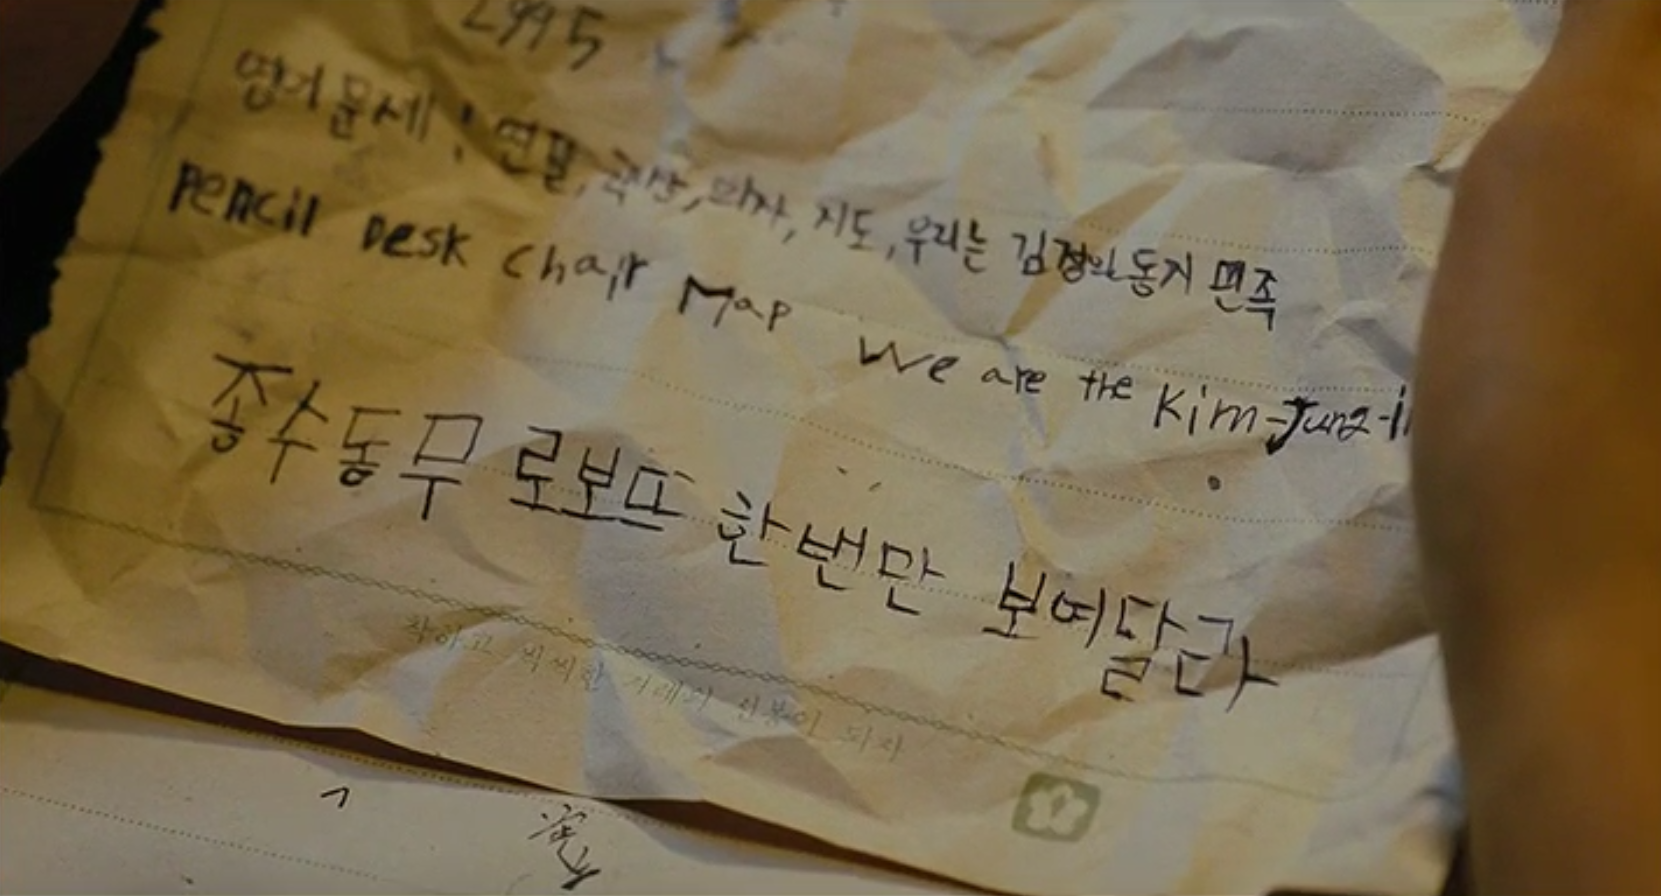 2995
영어문세 : 연필, 책상, 의자, 지도, 우리는 김정일 동지 면족
Pencil Desk Chair Map We are the Kim-Jung-il
종수동무 로보뜨 한번만 보여달라
착하고 씩씩한 겨레의 일꾼이 되자